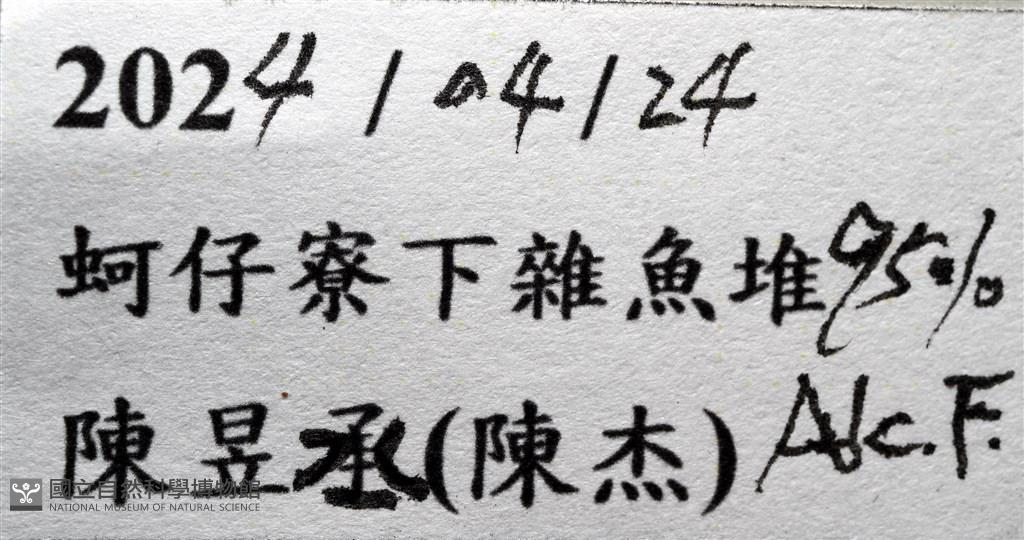 2024/04/24
蚵仔寮下雜魚堆95%
陳昱承(陳杰) Alc.F.
國立自然科學博物館
NATIONAL MUSEUM OF NATURAL SCIENCE